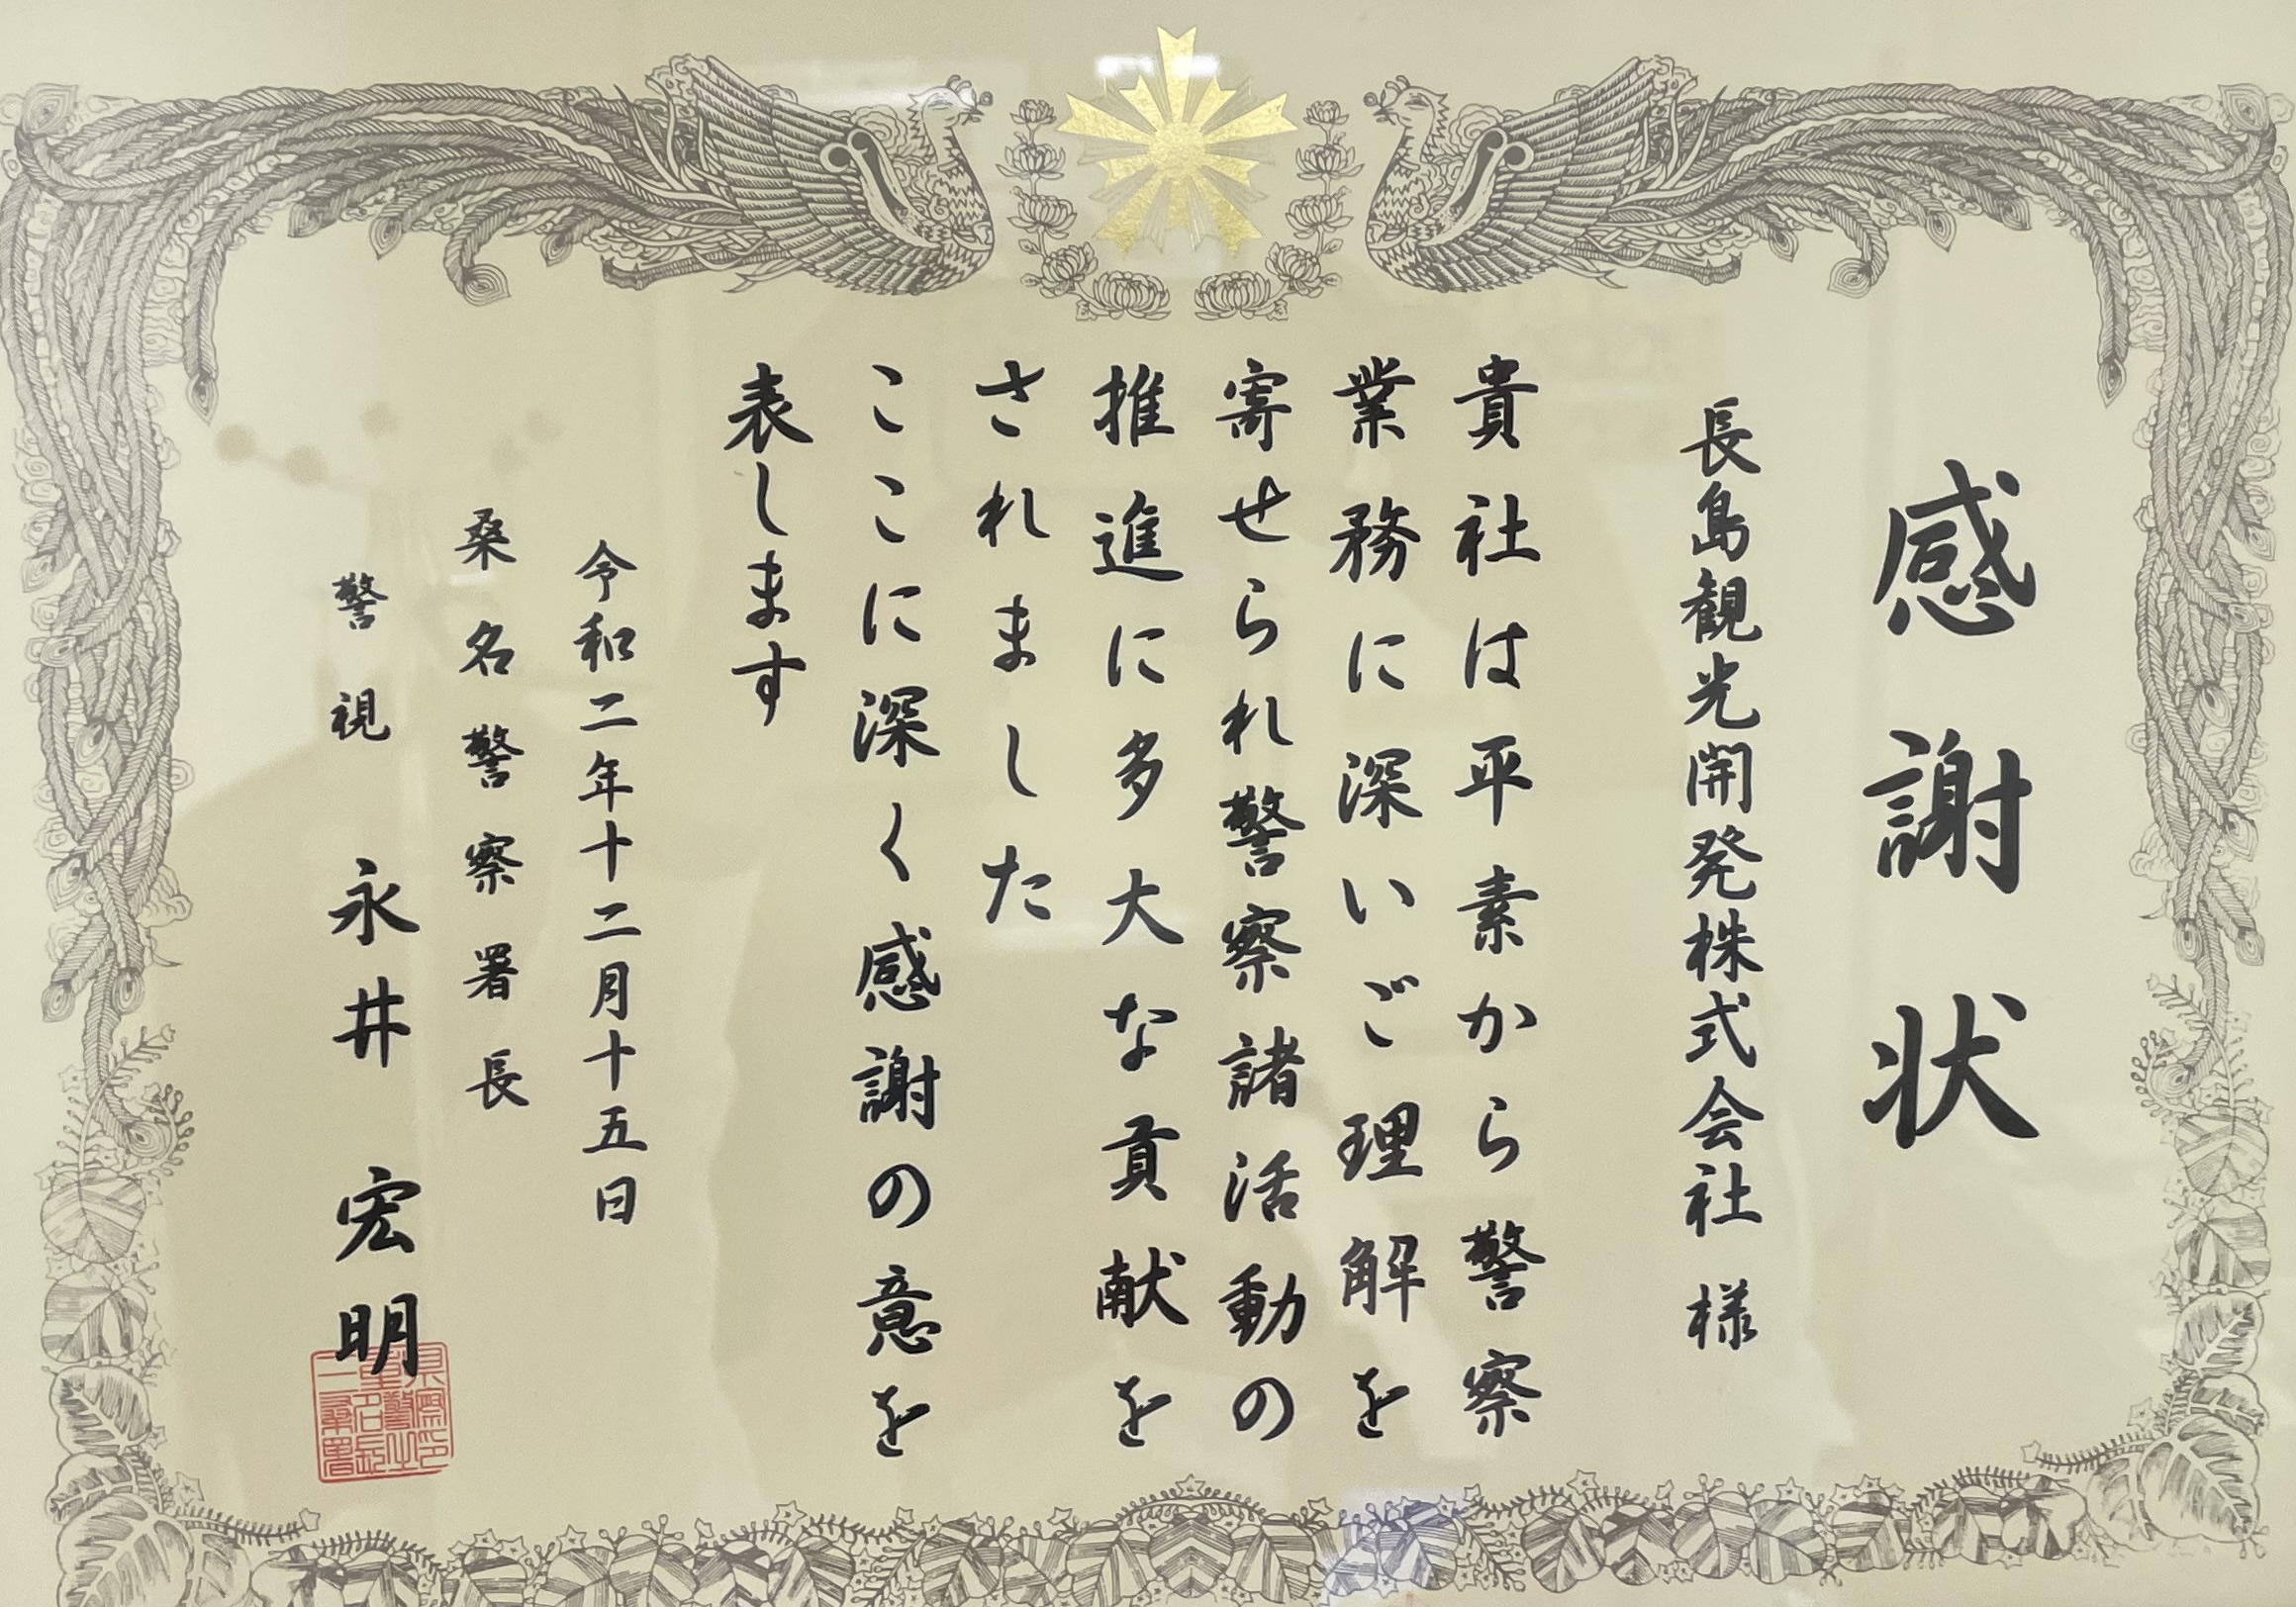 感謝状
長島観光開発株式会社 様
貴社は平素から警察
業務に深いご理解を
寄せられ警察諸活動の
推進に多大な貢献を
されました
ここに深く感謝の意を
表します
令和二年十二月十五日
桑名警察署長
警視 永井 宏明